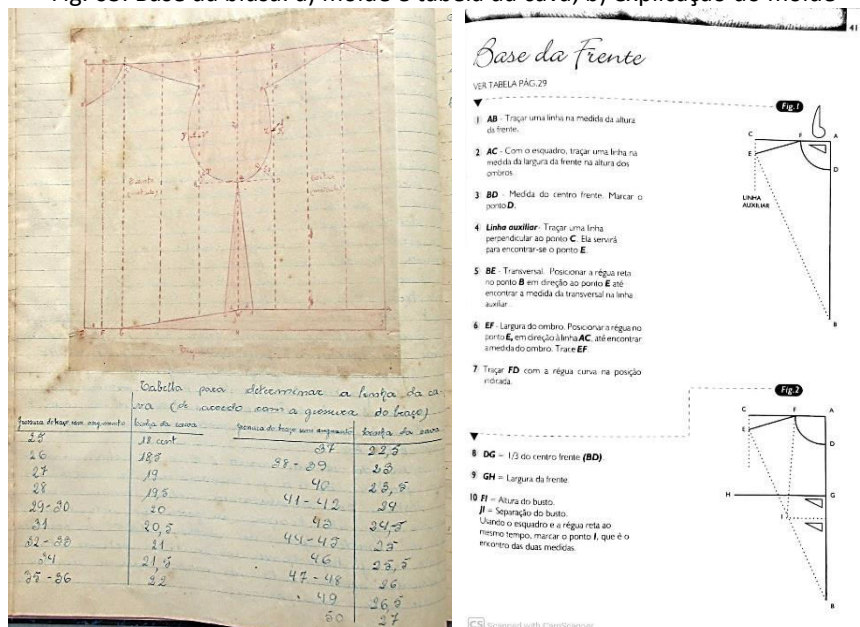 Base da blusa: a) molde e tabela da cava; b) explicação do molde
Tabella para determinar a linha da ca-
va (de acordo com a grossura do braço)
grossura do braço sem augmento linha da cava
25 18 cent
26 18,5
27 19
28 19,5
29-30 20
31 20,5
32-33 21
34 21,5
35-36 22
grossura do braço sem augmento linha da cava
37 22,5
38-39 23
40 23,5
41-42 24
43 24,5
44-45 25
46 25,5
47-48 26
49 26,5
50 27
41
Base da Frente
VER TABELA PÁG.29
1 AB - Traçar uma linha na medida da altura
da frente.
2 AC - Com o esquadro, traçar uma linha na
medida da largura da frente na altura dos
ombros.
3 BD - Medida do centro frente. Marcar o
ponto D.
4 Linha auxiliar - Traçar uma linha
perpendicular ao ponto C. Ela servirá
para encontrar-se o ponto E.
5 BE - Transversal. Posicionar a régua reta
no ponto B em direção ao ponto E até
encontrar a medida da transversal na linha
auxiliar.
6 EF - Largura do ombro. Posicionar a régua no
ponto E, em direção à linha AC, até encontrar
a medida do ombro. Trace EF.
7 Traçar FD com a régua curva na posição
indicada.
Fig.1
C F A
E
D
LINHA
AUXILIAR
B
8 DG = 1/3 do centro frente (BD).
9 GH = Largura da frente.
10 FI = Altura do busto.
JI = Separação do busto.
Usando o esquadro e a régua reta ao
mesmo tempo, marcar o ponto I, que é o
encontro das duas medidas.
Fig.2
C F A
E
D
H G
I J
B
CS Scanned with CamScanner